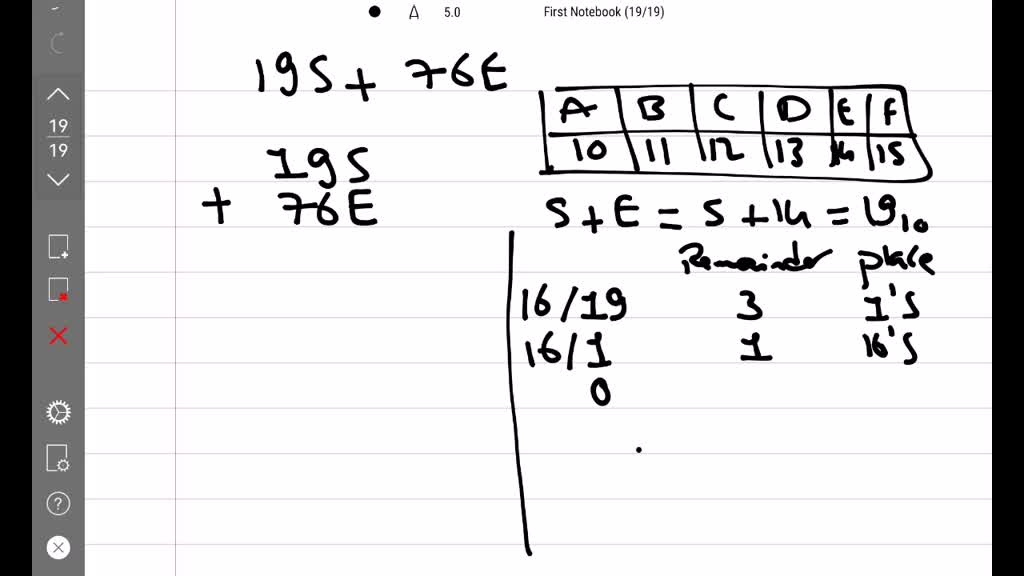 A 5.0 First Notebook (19/19)
195 + 76E
A B C D E F
10 11 12 13 14 15
195
+ 76E
5 + E = 5 + 14 = 19₁₀
Remainder place
16/19 3 1's
16/1 1 16's
0
19
19